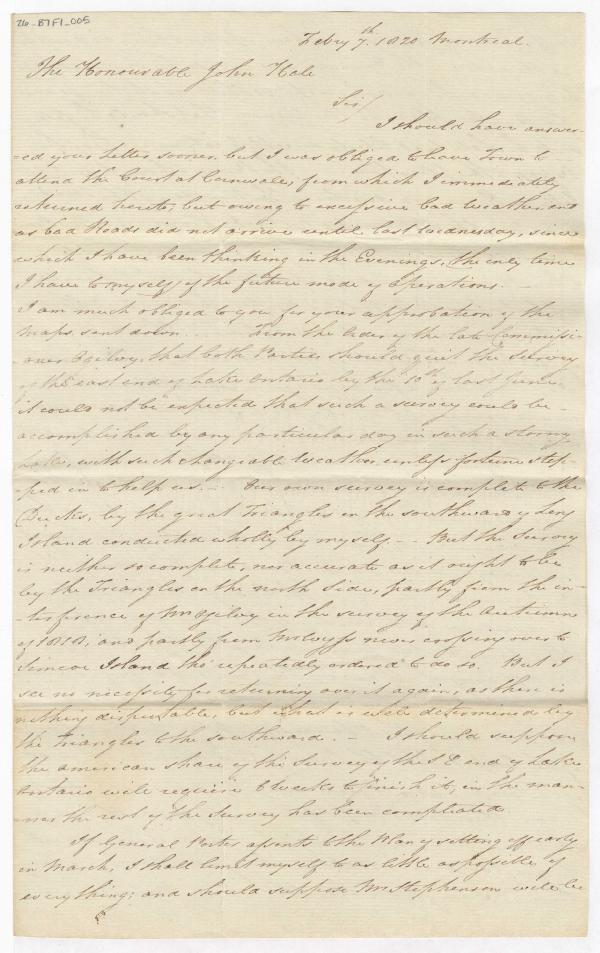 26-B7F1-005
Feby 7th. 1820 Montreal.
The Honourable John Hale
Sir/
I should have answer-
-ed your letter sooner, but I was obliged to leave Town to
attend the Court at Cornwale, from which I immediately
returned hereto, but owing to excessive bad weather and
as bad Roads did not arrive until last Wednesday, since
which I have been thinking in the Evenings, (the only time
I have to myself) of the future mode of operations. -
I am much obliged to you for your approbation of the
Maps sent down. From the order of the late Commissi-
-oner Ogilvy, that both Parties should quit the Survey
of the east end of Lake Ontario by the 10th of last June
it could not be expected that such a survey could be -
accomplished by any particular day in such a stormy
Lake, with such changeable weather, unless fortune step-
-ped in to help us. - Our own survey is complete to the
Ducks, by the great Triangles on the southward of Long
Island conducted wholly by myself. - - But the Survey
is neither so complete, nor accurate as it ought to be
by the Triangles on the north side, partly from the in-
-terference of Mr Ogilvy in the survey of the Autumn
of 1818, and partly from never crossing over to
Simcoe Island tho' repeatedly ordered to do so. But I
see no necessity for returning over it again, as there is
nothing disputable, but what is well determined by
the Triangles to the southward. - I should suppose
the American share of the Survey of the SE end of Lake
Ontario will require weeks to finish it, in the man-
-ner the rest of the Survey has been compleated
If General Porter assents to the Plan of setting off early
in March, I shall limit myself to as little as possible of
every thing; and should suppose Mr Stephenson will be